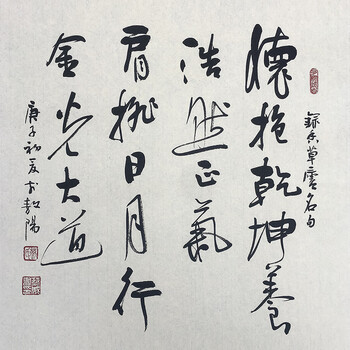 草廬名句
懷抱乾坤養
浩然正氣
肩挑日月行
金光大道
庚子初夏於陽